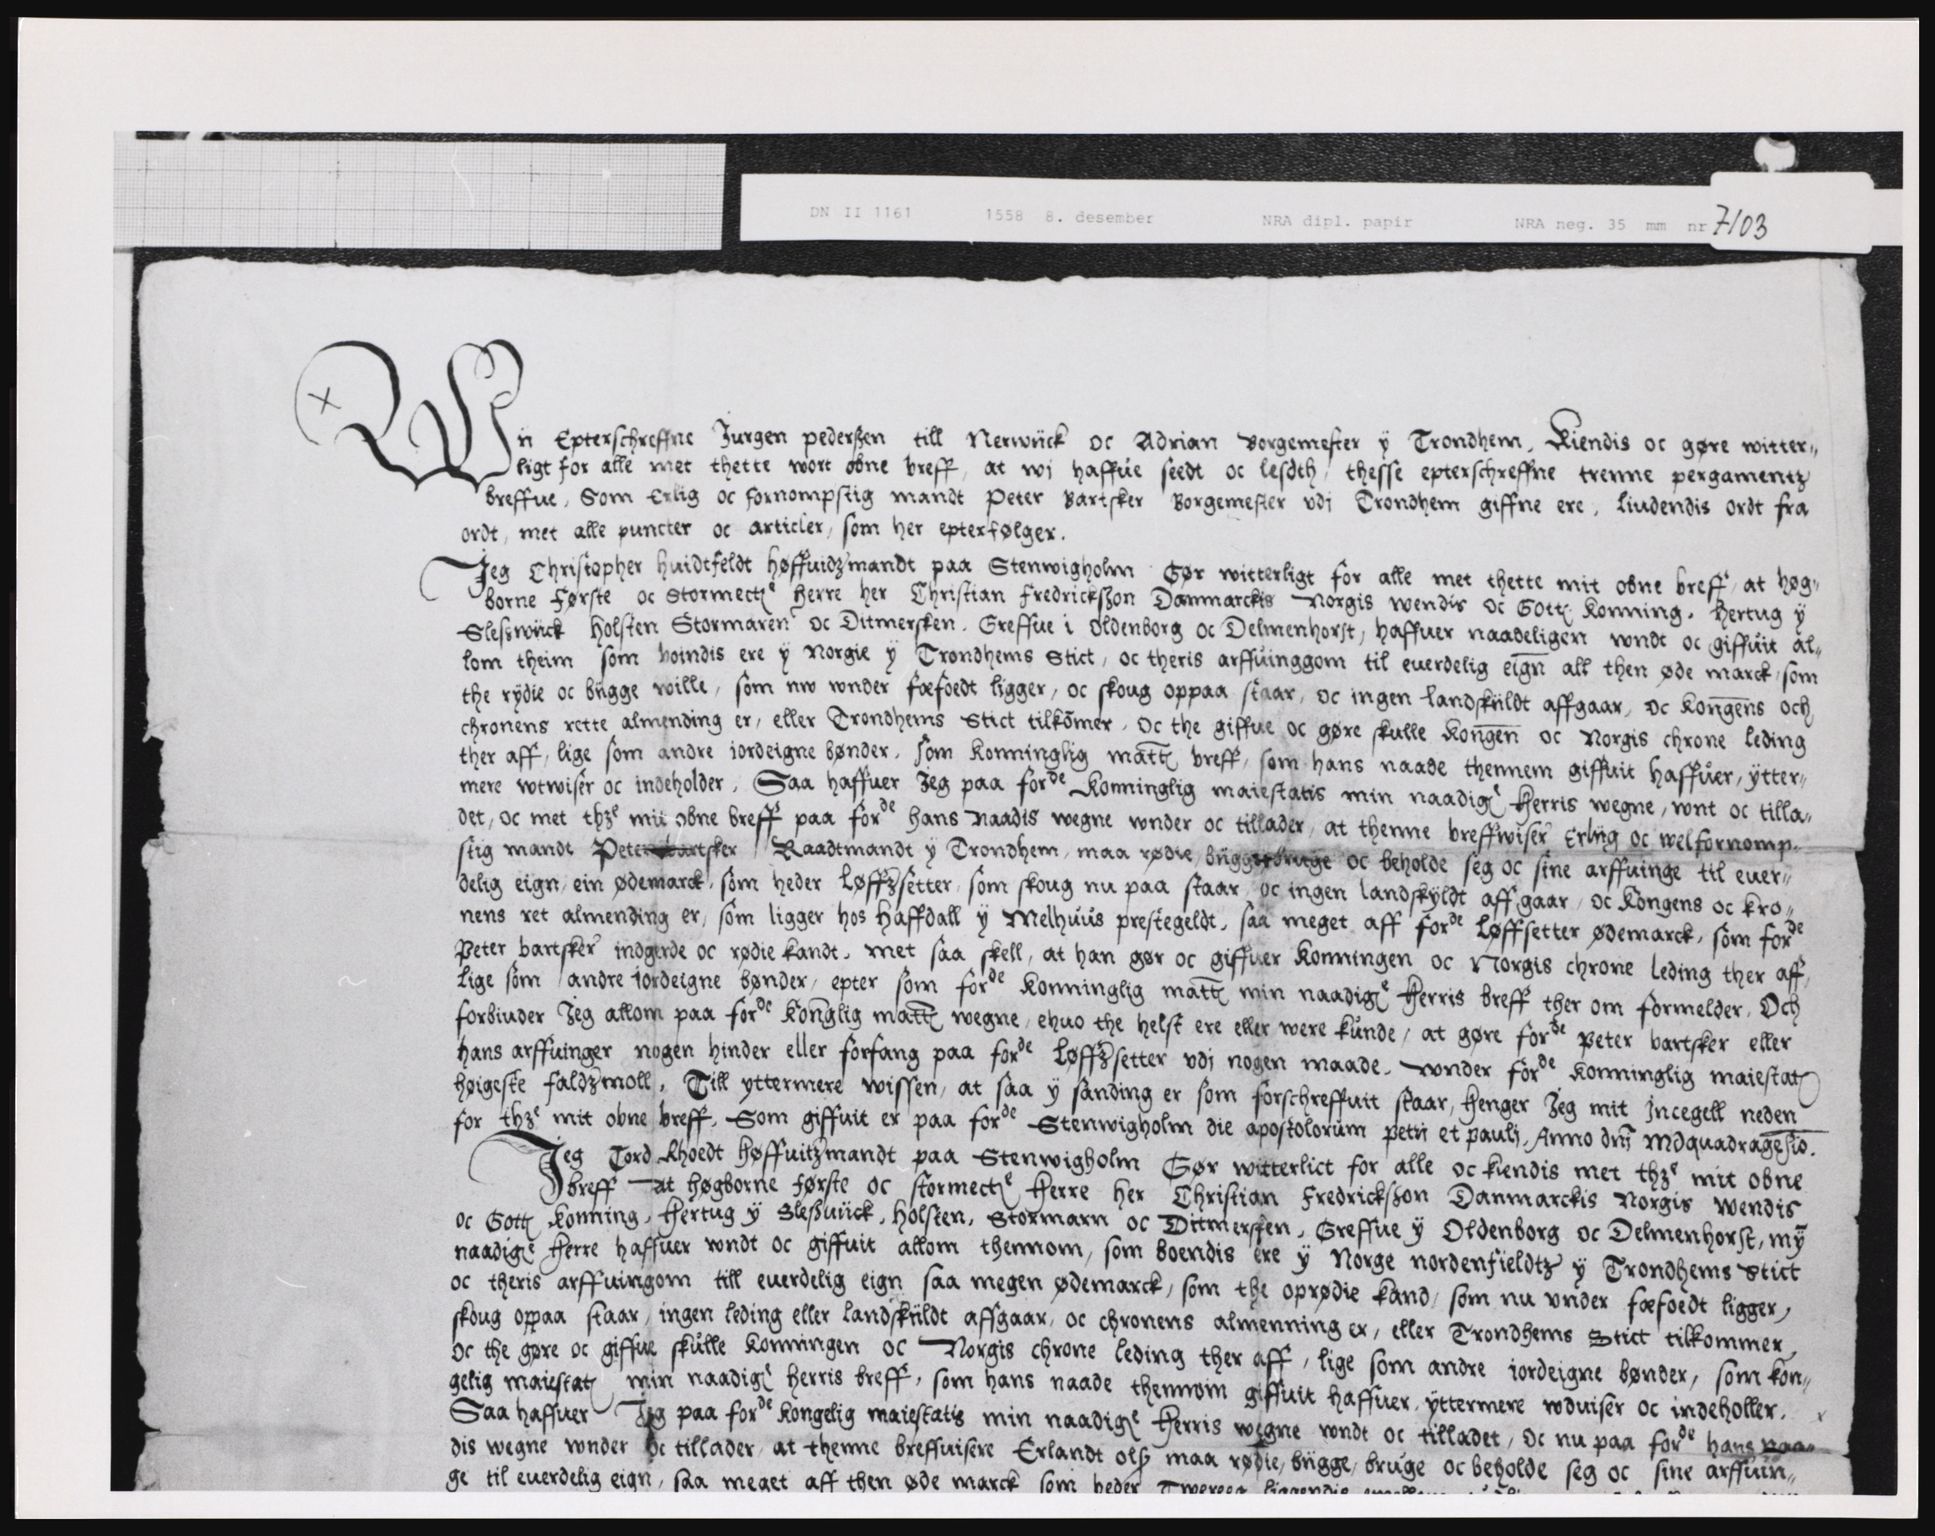 DN II 1161 1558 8. desember NRA dipl. papir NRA neg. 35 mm nr 7103
Wii Epterschreffne Jurgen pederßen till Nerwiick oc Adrian Borgemester ÿ Trondhem, Kiendis oc gøre witter„
ligt for alle met thette wort obne breff, at wj haffue seedt oc lesdth, thesse epterschreffne trenne pergamentz
breffue, Som Erlig oc fornompstig mandt Peter Bartsker Borgemester vdj Trondhem giffne ere, liudendis ordt fra
ordt, met alle puncter oc articler, som her epterfølger.
Jeg Christopher huidtfeldt høffuidzmandt paa Stenwigholm Gør witterligt for alle met thette mit obne breff, at høg„
borne Første oc Stormectiᵉ herre her Christian Fredricksßon Danmarckis Norgis wendis oc Gottį Konning, Hertug ÿ
Sleßwiick Holsten Stormaren oc Ditmersken, Greffue i Oldenborg oc Delmenhorst, haffuer naadeligen wndt oc giffuit al„
lom theim som boindis ere ÿ Norgie ÿ Trondhems Stict, oc theris arffuinggom til euerdelig eign all then øde marck, som
the rÿdie oc bügge wille, som nw wnder fæfoedt ligger, oc skoug oppaa staar, oc ingen landskÿldt affgaar, oc Kongens och
chronens rette almending er, eller Trondhems Stict tilkom̄er, oc the giffue oc gøre skulle Kongen oc Norgis chrone leding
ther aff, lige som andre iordeigne bønder, som Konninglig matt breff, som hans naade thennem giffuit haffuer, ÿtter„
mere wtwiser oc indeholder, Saa haffuer Jeg paa forᵈᵉ Konninglig maiestatis min naadigᵉ Herris wegne, wnt oc tilla„
det, oc met thzᵉ mit obne breff paa forᵈᵉ hans Naadis wegne wnder oc tillader, at thenne breffwiser Erlÿg oc welfornomp„
stig mandt Peter bartsker Raadtmandt ÿ Trondhem, maa rødie, bügge bruge oc beholde seg oc sine arffuinge til euer„
delig eign, ein ødemarck, som heder Løffzsetter, som skoug nu paa staar, oc ingen landskÿldt affgaar, oc Kongens oc kro„
nens ret almending er, som ligger hos Haffdall ÿ Melhuus prestegeldt, saa meget aff forᵈᵉ Løffsetter ødemarck, som forᵈᵉ
Peter bartsker indgerde oc rødie kandt, met saa skell, at han gør oc giffuer Konningen oc Norgis chrone leding ther aff,
lige som andre iordeigne bønder, epter som forᵈᵉ Konninglig matt min naadigᵉ Herris breff ther om formelder, Och
forbiuder Jeg allom paa forᵈᵉ Konglig matt wegne, ehuo the helst ere eller were kunde, at gøre forᵈᵉ Peter bartsker eller
hans arffuinger nogen hinder eller forfang paa forᵈᵉ Løffzsetter vdj nogen maade, wnder forᵈᵉ Konninglig maiestatz
høigeste faldzmoll, Till yttermere wissen, at saa ÿ sanding er som forschreffuit staar, henger Jeg mit Jncegell neden
for thzᵉ mit obne breff, Som giffuit er paa forᵈᵉ Stenwigholm die apostolorum petri et paulj, Anno dnj Mdquadragesio.
Jeg Tord Rhoedt høffuitzmandt paa Stenwigholm Gør witterlict for alle oc kiendis met thzᵉ mit obne
breff at høgborne første oc stormectiᵉ Herre her Christian Fredricksßon Danmarckis Norgis Wendis
oc Gottį Konning, Hertug ÿ Sleßuiick, Holsten, Stormarn oc Ditmersken, Greffue ÿ Oldenborg oc Delmenhorst, mÿ
naadigᵉ Herre haffuer wndt oc giffuit allom thennom, som boendis ere ÿ Norge nordenfieldtz ÿ Trondhems Stict
oc theris arffuingom till euerdelig eign saa megen ødemarck, som the oprødie kand, som nu vnder fæfoedt ligger,
skoug oppaa staar, ingen leding eller landskÿldt affgaar, oc chronens almenning er, eller Trondhems Stict tilkommer,
oc the gøre oc giffue skulle Konningen oc Norgis chrone leding ther aff, lige som andre iordeigne bønder, som kon„
gelig maiestatz min naadigᵉ herris breff, som hans naade thennom giffuit haffuer, ÿttermere wduiser oc indeholler.
Saa haffuer Jeg paa forᵈᵉ Kongelig maiestatis min naadigᵉ Herris wegne wndt oc tilladet, oc nu paa forᵈᵉ hans naa„
dis wegne wnder oc tillader, at thenne breffuisere Erlandt olß maa rødie, bügge, bruge oc beholde seg oc sine arffuin„
ge til euerdelig eign, saa meget aff then øde marck som heder